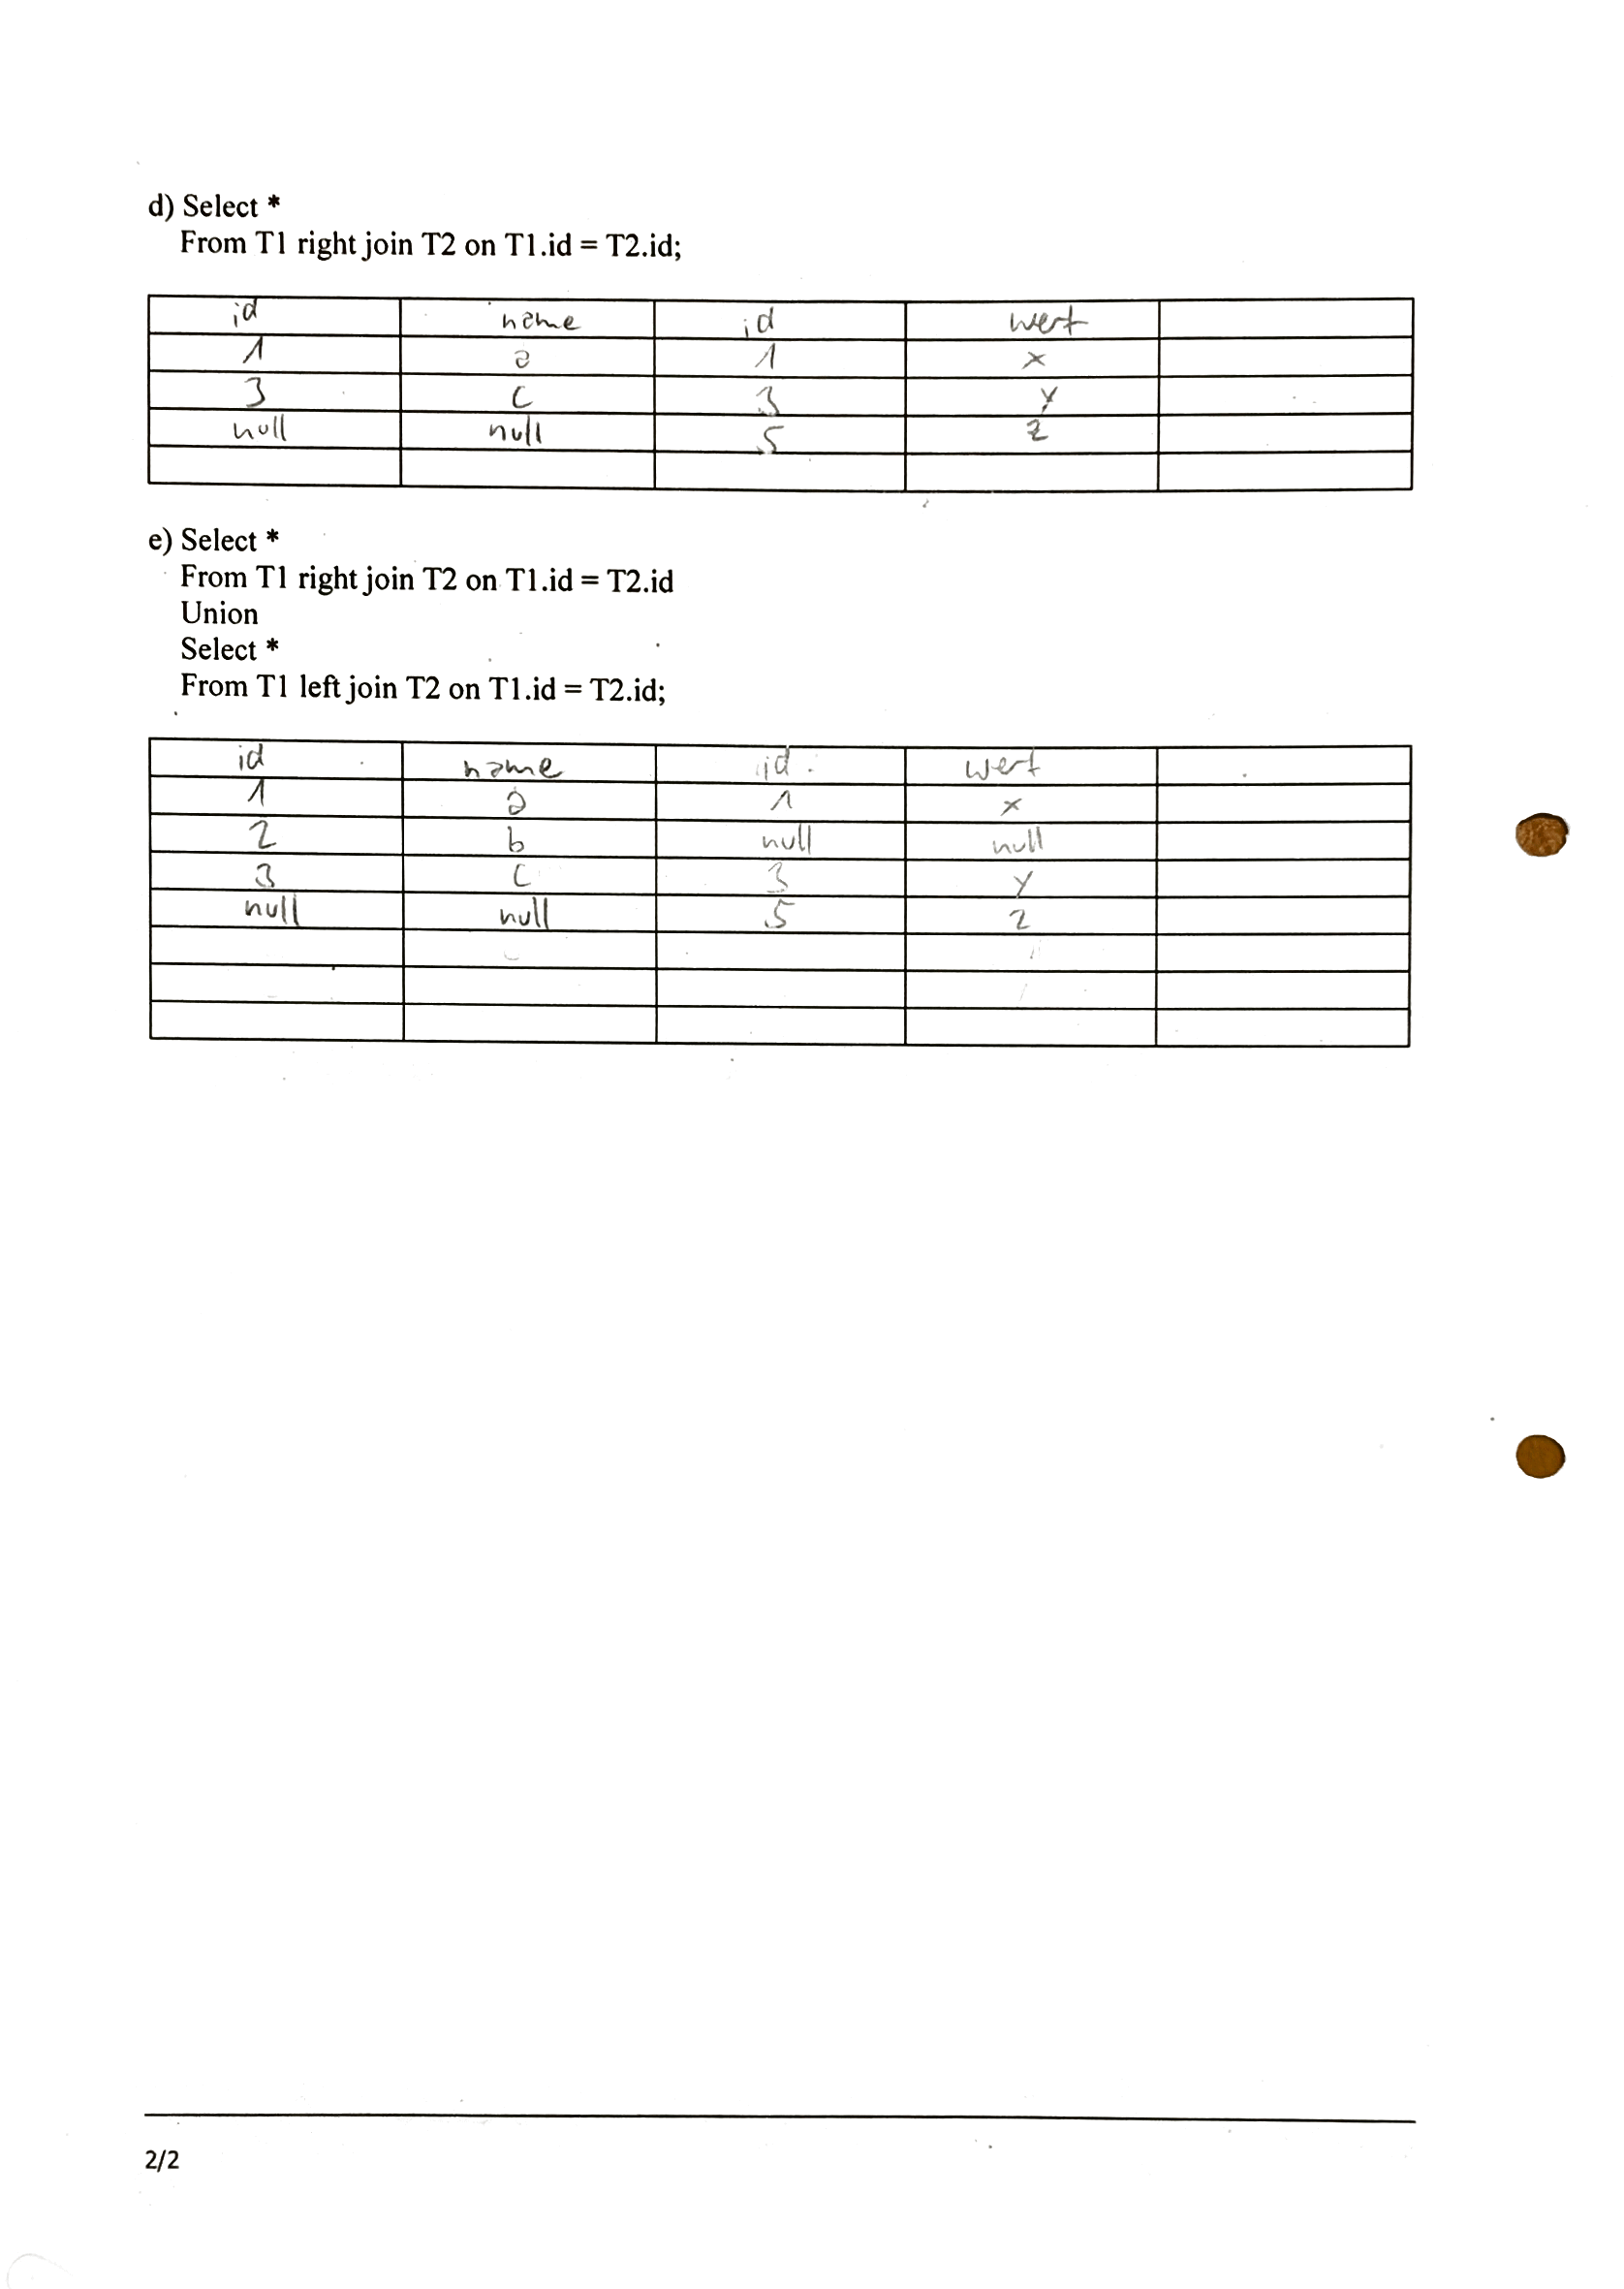 d) Select *
From T1 right join T2 on T1.id = T2.id;
id name id wert
1 a 1 x
3 c 3 y
null null 5 z
e) Select *
From T1 right join T2 on T1.id = T2.id
Union
Select *
From T1 left join T2 on T1.id = T2.id;
id name id wert
1 a 1 x
2 b null null
3 c 3 y
null null 5 z
2/2